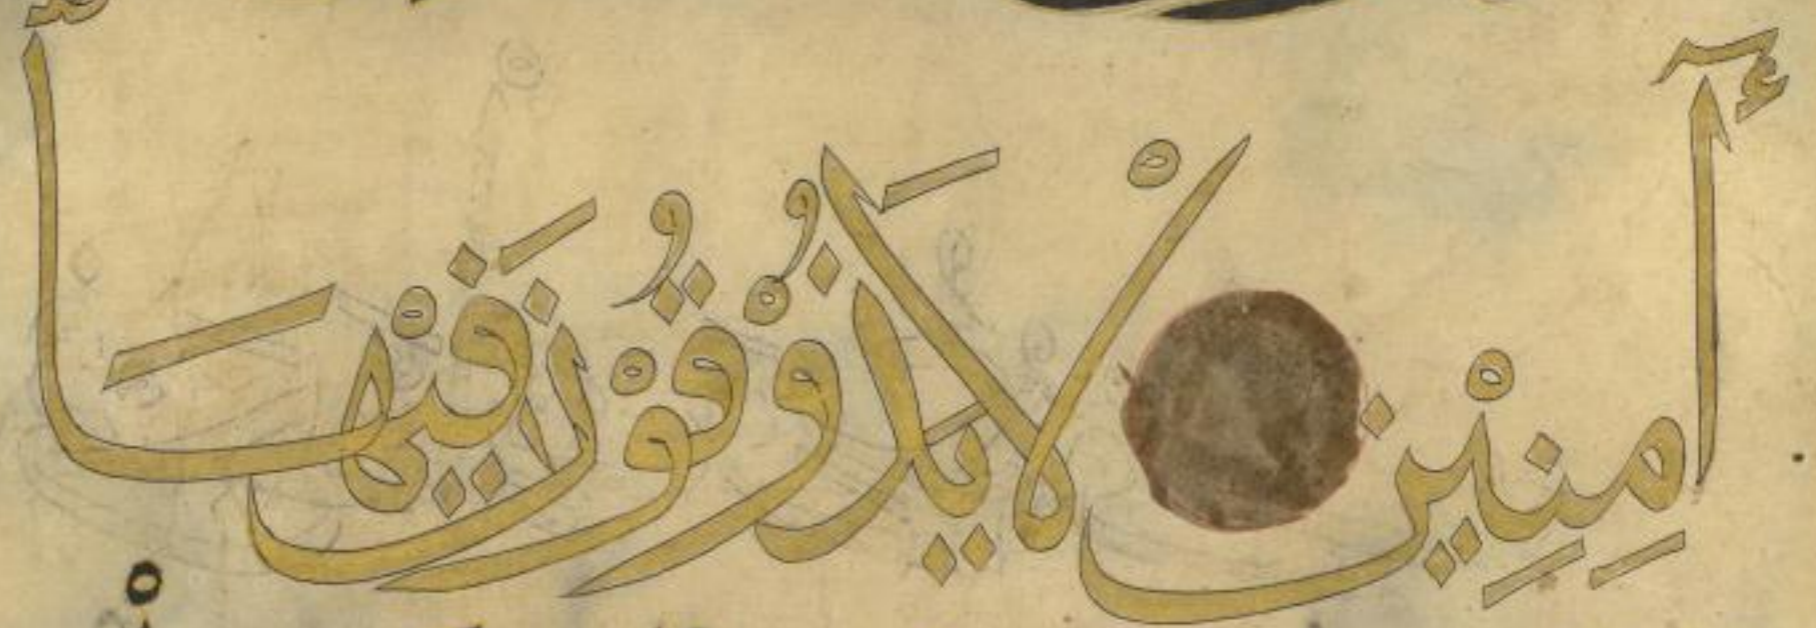 ءَامِنِيْنَ لَا يَذُوْقُوْنَ فِيْهَا